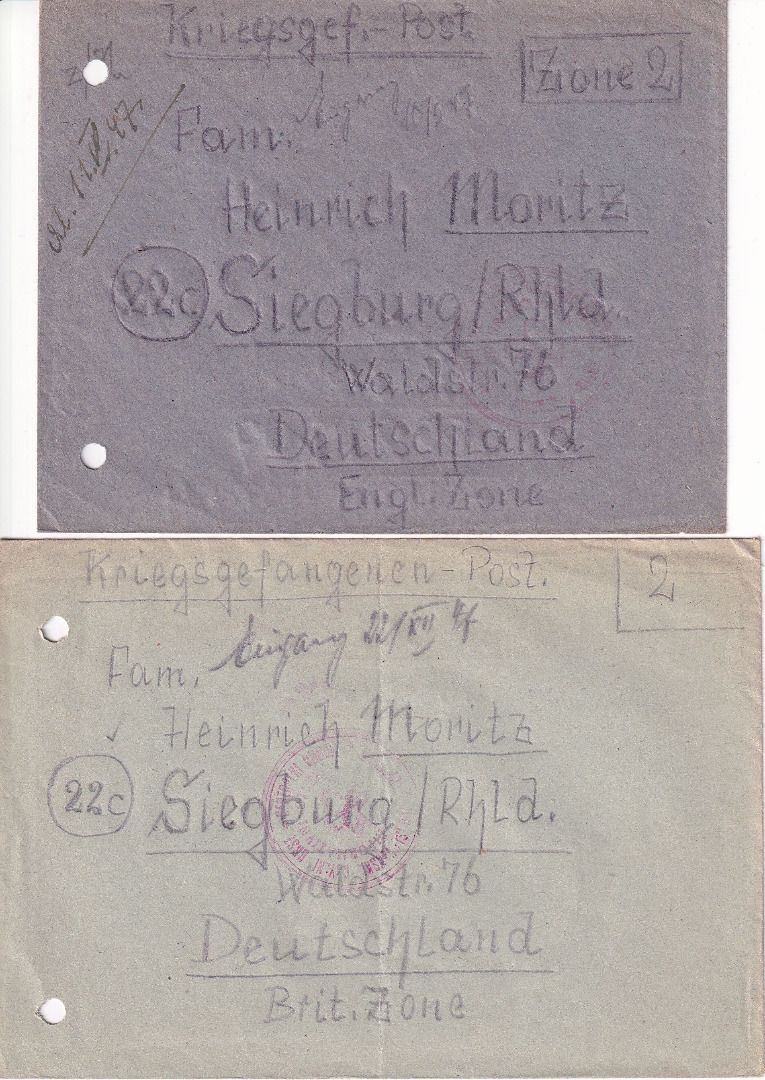 Kriegsgef.-Post
Zone 2
Fam.
Heinrich Moritz
22c Siegburg/Rhld.
Waldstr. 76
Deutschland
Engl. Zone
Kriegsgefangenen-Post.
2
Eingang 22/XII 47
Fam.
Heinrich Moritz
22c Siegburg/Rhld.
Waldstr. 76
Deutschland
Brit. Zone